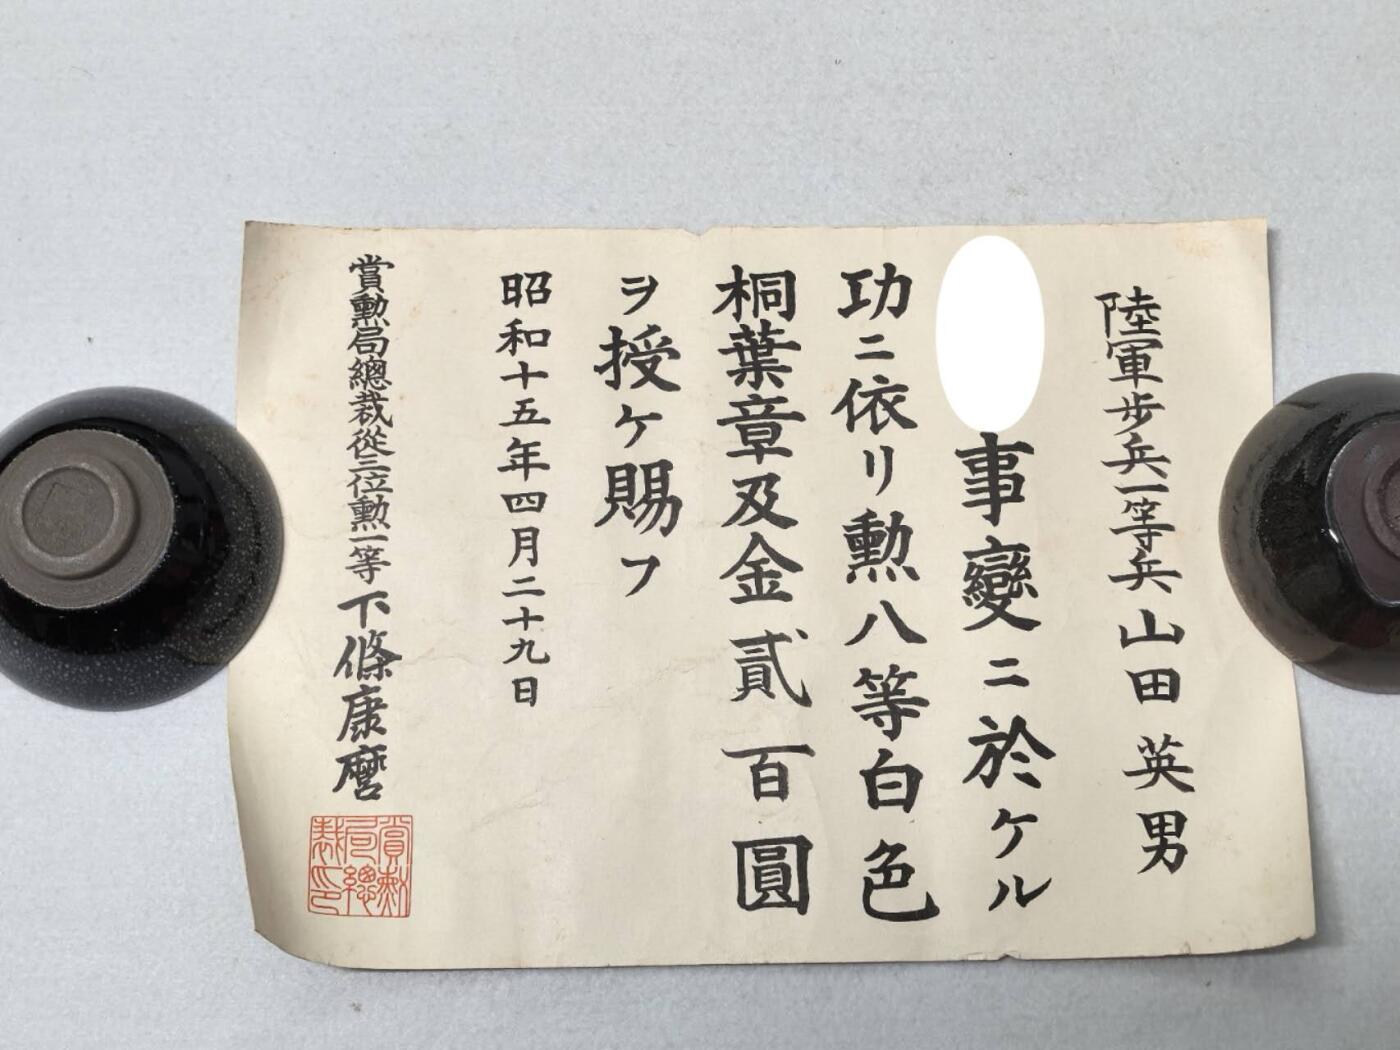 陸軍歩兵一等兵山田英男
事變ニ於ケル
功ニ依リ勲八等白色
桐葉章及金貳百圓
ヲ授ケ賜フ
昭和十五年四月二十九日
賞勲局總裁從三位勲一等下條康麿
賞勲局總裁印